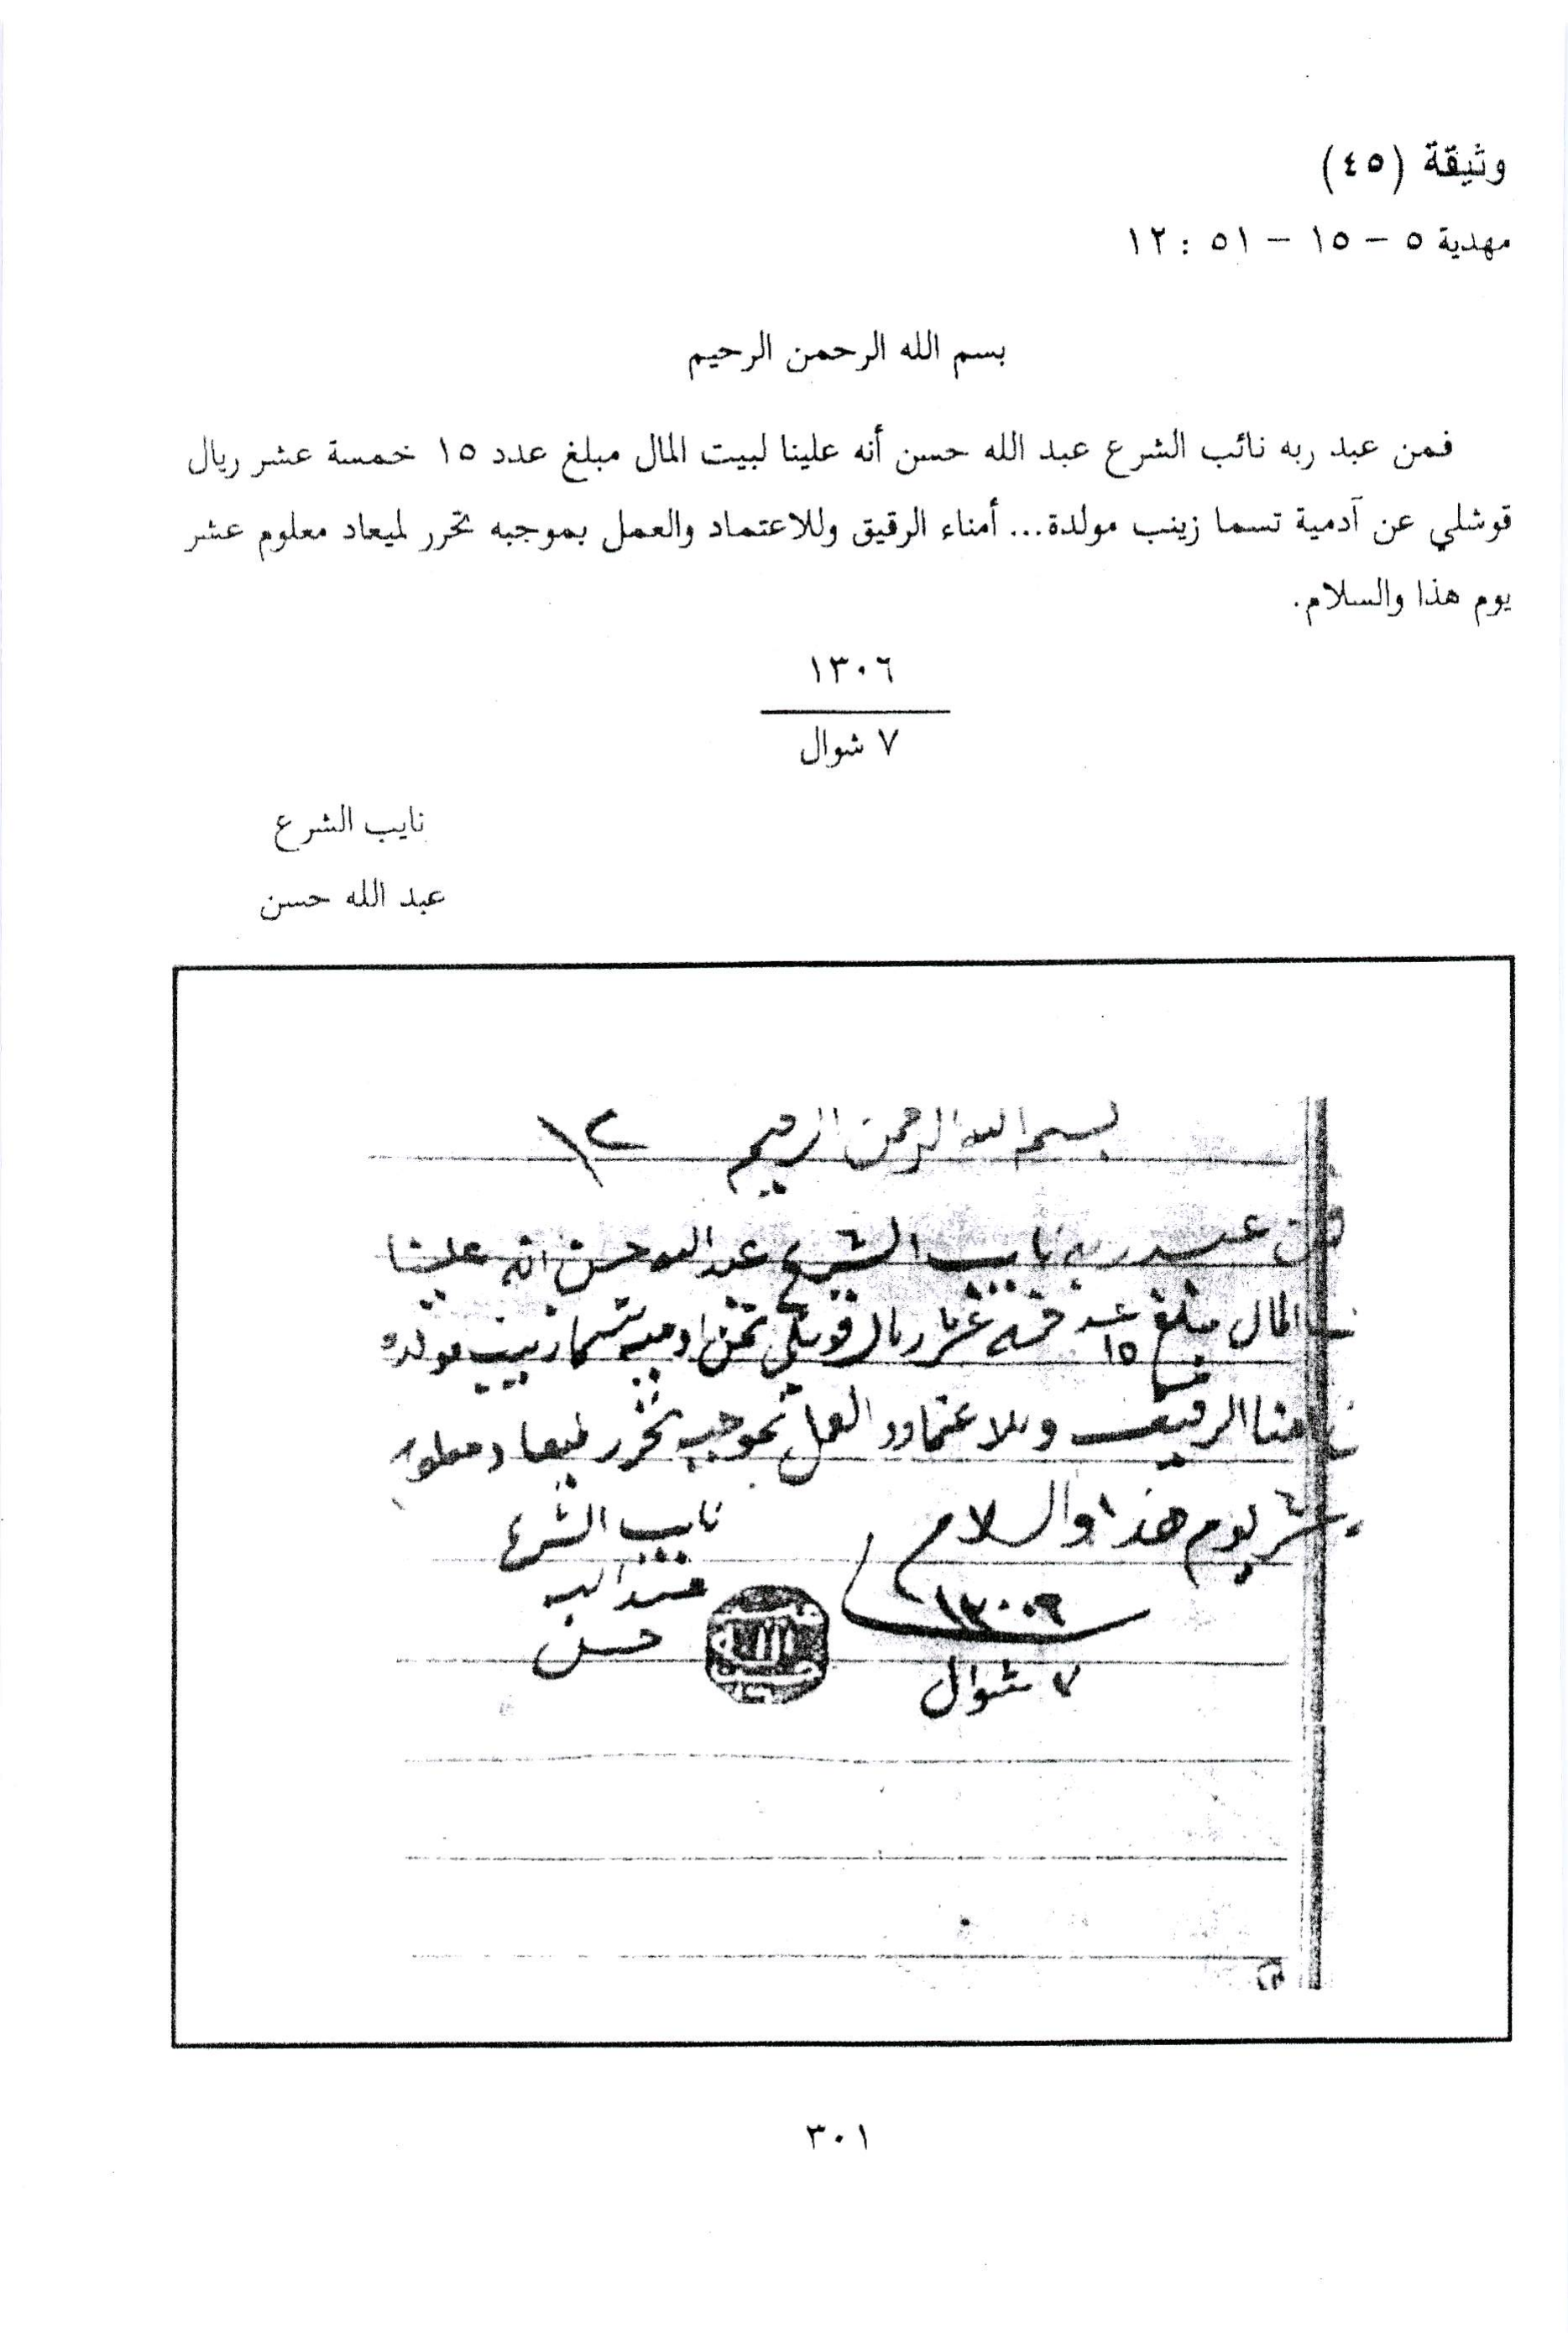 وثيقة (٤٥)
مهدية ٥ – ١٥ – ٥١ : ١٢
بسم الله الرحمن الرحيم
فمن عبد ربه نائب الشرع عبد الله حسن أنه علينا لبيت المال مبلغ عدد ١٥ خمسة عشر ريال
قوشلي عن آدمية تسما زينب مولدة... أمناء الرقيق وللاعتماد والعمل بموجبه تحرر لميعاد معلوم عشر
يوم هذا والسلام.
١٣٠٦
٧ شوال
نايب الشرع
عبد الله حسن
بسم الله الرحمن الرحيم ١٢
فمن عبد ربه نايب الشرع عبد الله حسن انه علينا
المال مبلغ عدد ١٥ خمسه عشر ريال قوشلي ثمن ادميه تسما زينب مولده
امنا الرقيق وللاعتماد والعمل بموجبه تحرر لميعاد معلوم
عشر يوم هذا والسلام
نايب الشرع
عبد الله
حسن
١٣٠٠٦
٧ شوال
٣٠١